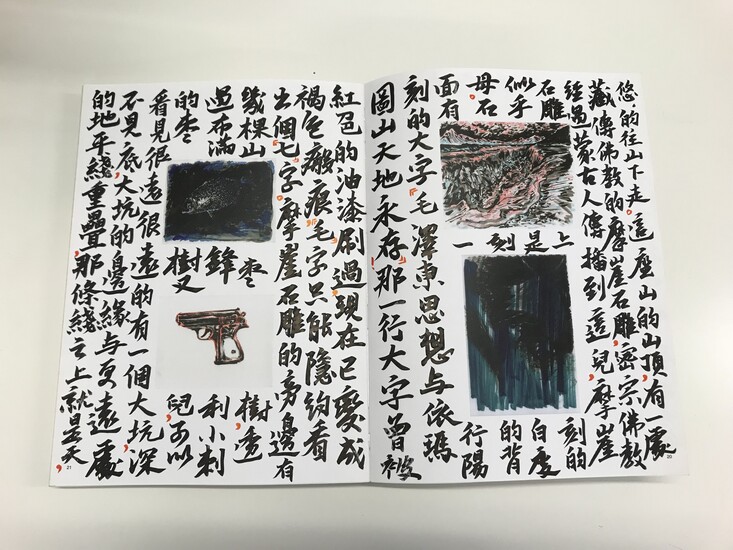 悠.的往山下走。這座山的山頂,有一處
藏傳佛教的摩崖石雕,密宗佛教
經過蒙古人傳播到這兒,摩崖
石雕上刻的
似乎是白度
母。石刻的背
面有一行陽
刻的大字『毛澤東思想与依瑪
圖山天地永存』!那一行大字曾被
20
紅色的油漆刷過,現在已變成
褐色瘢痕,『毛』字只能隱約看
出個『乇』字。摩崖石雕的旁邊有
幾棵山枣樹,透
過布滿鋒利小刺
的枣樹杈兒可以
看見很遠很遠的有一個大坑,深
不見底,大坑的邊緣与更遠處
的地平綫重疊,那條綫之上就是天,
21